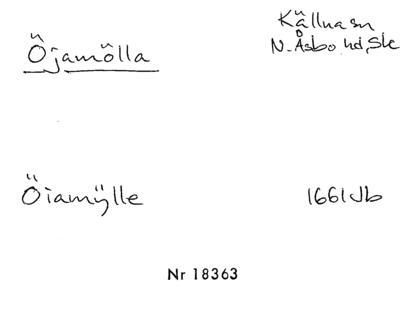 Öjamölla
Källna sn
N. Åsbo hd, Sk
Öiamÿlle
1661 Jb
Nr 18363